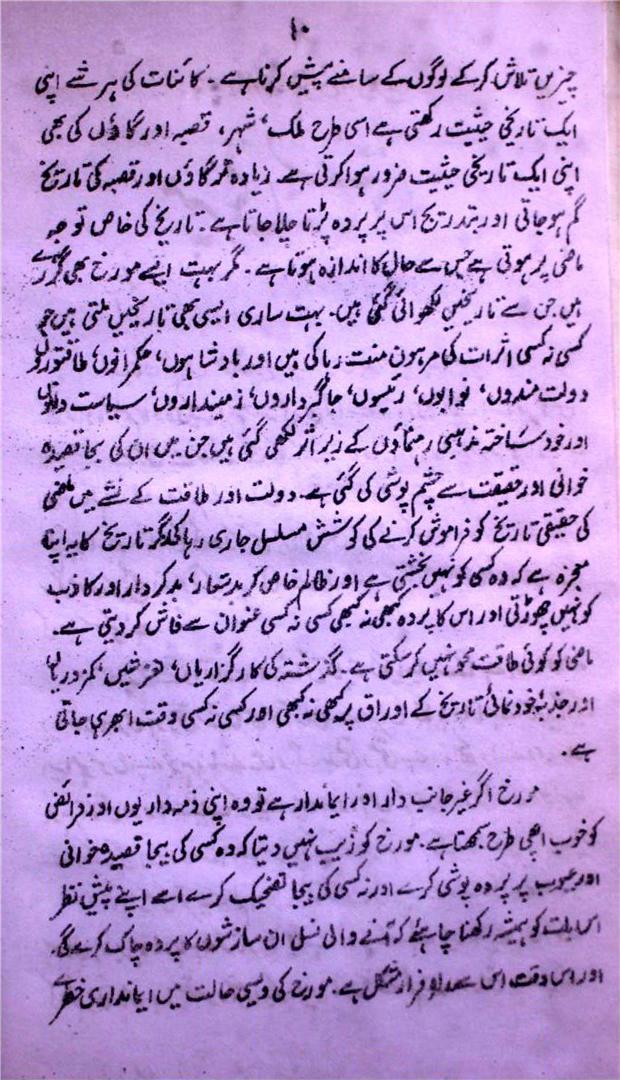 ۱۰
چیزیں تلاش کر کے لوگوں کے سامنے پیش کرنا ہے۔ کائنات کی ہر شے اپنی
ایک تاریخی حیثیت رکھتی ہے اسی طرح ملک، شہر، قصبہ اور گاؤں کی بھی
اپنی ایک تاریخی حیثیت ضرور ہوا کرتی ہے۔ زیادہ تر گاؤں اور قصبہ کی تاریخ
گم ہو جاتی اور بتدریج اس پر پردہ پڑتا چلا جاتا ہے۔ تاریخ کی خاص توجہ
ماضی پر ہوتی ہے جس سے حال کا اندازہ ہوتا ہے۔ مگر بہت ایسے مورخ بھی گزرے
ہیں جن سے تاریخیں لکھوائی گئی ہیں۔ بہت ساری ایسی بھی تاریخیں ملتی ہیں جو
کسی نہ کسی اثرات کی مرہون منت رہا کی ہیں اور بادشاہوں، حکمرانوں، طاقتوروں
دولت مندوں، نوابوں، رئیسوں، جاگیرداروں، زمینداروں، سیاست دانوں
اور خود ساختہ مذہبی رہنماؤں کے زیر اثر لکھی گئی ہیں جن میں ان کی بیجا قصیدہ
خوانی اور حقیقت سے چشم پوشی کی گئی ہے۔ دولت اور طاقت کے نشے میں ماضی
کی حقیقی تاریخ کو فراموش کرنے کی کوشش مسلسل جاری رہا کی مگر تاریخ کا یہ اپنا
معجزہ ہے کہ وہ کسی کو نہیں بخشتی ہے اور ظالم خاص کر بدشعار، بدکردار اور کاذب
کو نہیں چھوڑتی اور اس کا پردہ کبھی نہ کبھی کسی نہ کسی عنوان سے فاش کر دیتی ہے۔
ماضی کو کوئی طاقت محو نہیں کر سکتی ہے۔ گذشتہ کی کارگزاریاں، لغزشیں، کمزوریاں
اور جذبۂ خود نمائی تاریخ کے اوراق پر کبھی نہ کبھی اور کسی نہ کسی وقت ابھر ہی جاتی
ہے۔
مورخ اگر غیر جانب دار اور ایماندار ہے تو وہ اپنی ذمہ داریوں اور فرائض
کو خوب اچھی طرح سمجھتا ہے۔ مورخ کو زیب نہیں دیتا کہ وہ کسی کی بیجا قصیدہ خوانی
اور عیوب پر پردہ پوشی کرے اور نہ کسی کی بیجا تضحیک کرے اسے اپنے پیش نظر
اس بات کو ہمیشہ رکھنا چاہئے کہ آنے والی نسل ان سازشوں کا پردہ چاک کرے گی۔
اور اس وقت اس سے راہ فرار مشکل ہے۔ مورخ کی ویسی حالت میں ایمانداری خطرے